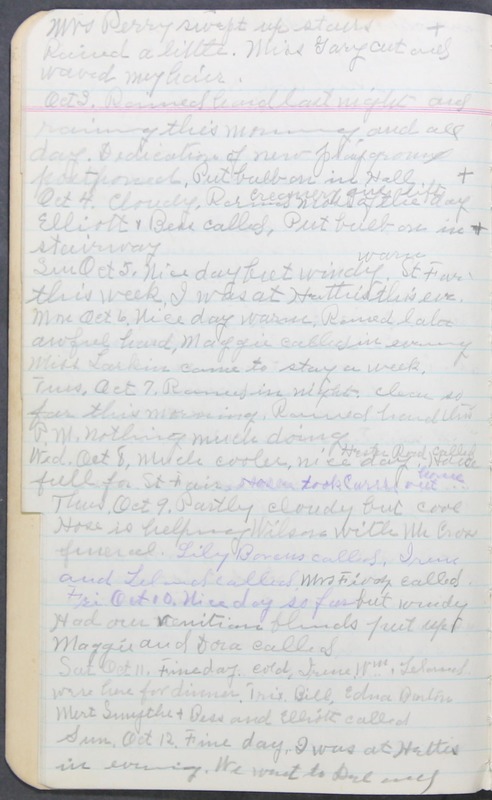 Mrs Perry swept up stairs +
Rained a little. Miss Gary cut and
waved my hair.
Oct 3. Rained hard last night and
raining this morning and all
day. Dedication of new playground
postponed, Put bulb on in Hall +
Oct 4. Cloudy, the day
Elliott & Bess called, Put bulb on in +
stairway
Sun Oct 5. Nice day but windy, warm St Fair
this week, I was at Hatties this eve.
Mon Oct 6, Nice day warm, Rained late
awful hard, Maggie called in evening
Miss Larkin came to stay a week.
Tues, Oct 7. Rained in night. clear so
far this morning. Rained hard this
P. M. Nothing much doing
Wed. Oct 8, Much cooler, nice day called
full for St Fair. Hose took out
Thurs. Oct 9, Partly cloudy but cool
Hose is helping Wilson with Mr Crow
funeral. Lily Borens called, Irene
and Leland called Mrs called
Fri Oct 10. Nice day so far but windy
Had our venitian blinds put up
Maggie and Dora called
Sat Oct 11. Fine day. cold, Irene Wm & Leland
were here for dinner, Iris. Bill, Edna Barton
Mert Smythe & Bess and Elliott called
Sun, Oct 12. Fine day, I was at Hatties
in evening. We went to and